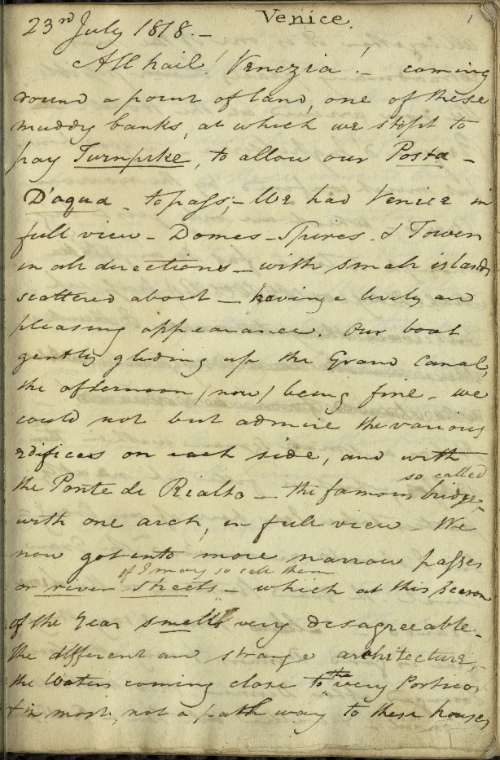 Venice. 1
23rd July 1818.—
All hail! Venezia!— coming
round a point of land, one of these
muddy banks, at which we stopt to
pay Turnpike, to allow our Posta-
D'aqua - to pass;- We had Venice in
full view - Domes - Spires - & Towers
in all directions - with small islands
scattered about - having a lively and
pleasing appearance. Our boat
gently gliding up the Grand Canal,
the afternoon (now) being fine - we
could not but admire the various
edifices on each side, and with
so called
the Ponte de Rialto - the famous bridge-
with one arch, in full view - We
now got into more narrow passes
if I may so call them
or river streets - which at this Season
of the Year smells very disagreeable.
the different and strange architecture,
the
the Waters coming close to very Porticos
& in most, not a path way to these houses